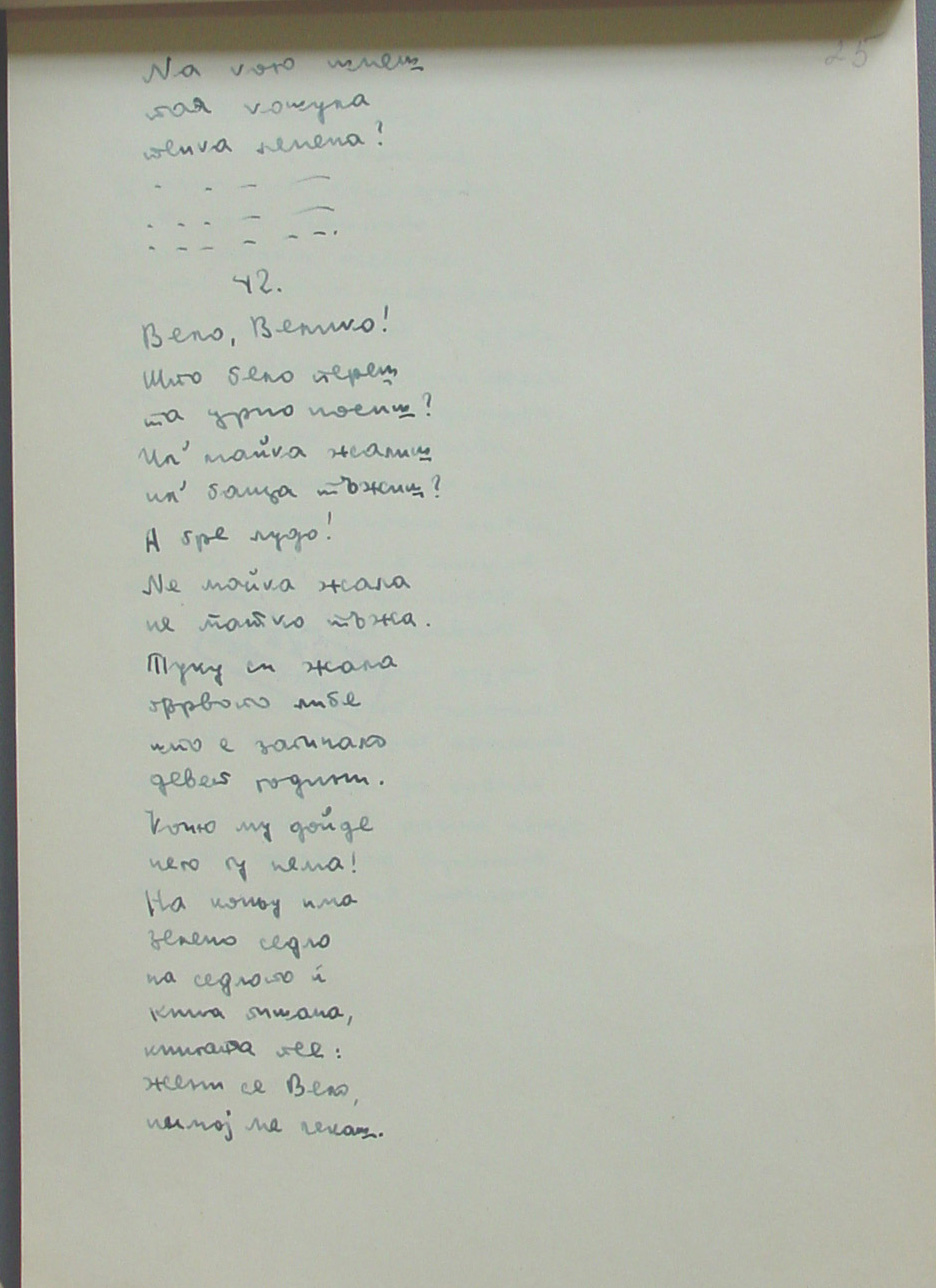 25
На кого шиеш
тая кошула
тенка ленена?
42.
Вело, Велико!
Што бело переш
та црно носиш?
Ил' майка жалиш
ил' баща тъжиш?
А бре лудо!
Не майка жала
не татко тъжа.
Туку си жала
първото либе
што е загинало
девет годин.
Коню му дойде
него гу нема!
На коньу има
зелено седло
на седлото ѝ
книга писана,
книгата пее:
жени се Вело,
немој ме чекаш.